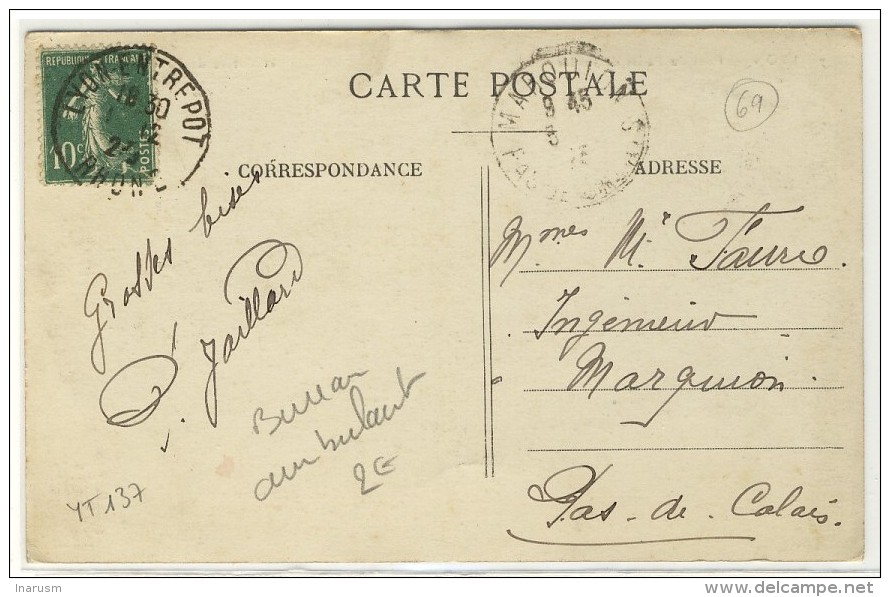 CARTE POSTALE
CORRESPONDANCE
ADRESSE
REPUBLIQUE FRANÇAISE
10c POSTES
LYON ENTREPOT
18 30
RHONE
MARQUION
9 45
69
Mmes Mr Faure.
Ingénieur
Marquion.
Pas-de-Calais.
Grosses bises
Jaillard
Bureau
ambulant
2€
YT137
Inarusm
www.delcampe.net